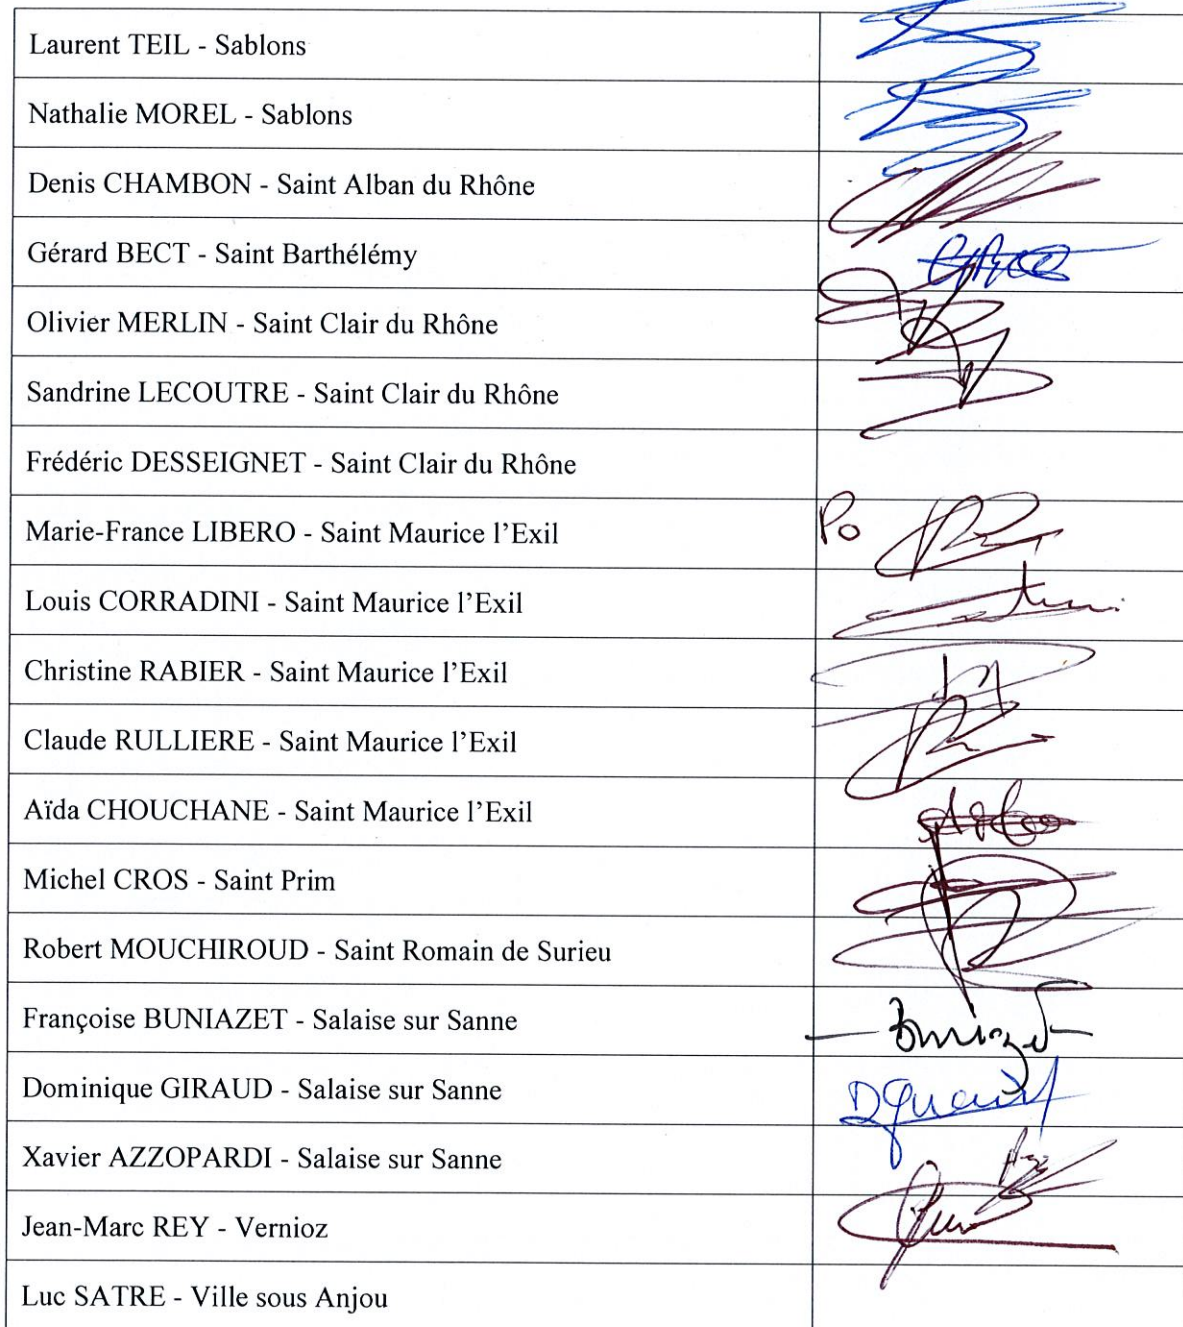 Laurent TEIL - Sablons
Nathalie MOREL - Sablons
Denis CHAMBON - Saint Alban du Rhône
Gérard BECT - Saint Barthélémy
Olivier MERLIN - Saint Clair du Rhône
Sandrine LECOUTRE - Saint Clair du Rhône
Frédéric DESSEIGNET - Saint Clair du Rhône
Marie-France LIBERO - Saint Maurice l'Exil Po
Louis CORRADINI - Saint Maurice l'Exil
Christine RABIER - Saint Maurice l'Exil
Claude RULLIERE - Saint Maurice l'Exil
Aïda CHOUCHANE - Saint Maurice l'Exil
Michel CROS - Saint Prim
Robert MOUCHIROUD - Saint Romain de Surieu
Françoise BUNIAZET - Salaise sur Sanne Buniazet
Dominique GIRAUD - Salaise sur Sanne
Xavier AZZOPARDI - Salaise sur Sanne
Jean-Marc REY - Vernioz
Luc SATRE - Ville sous Anjou